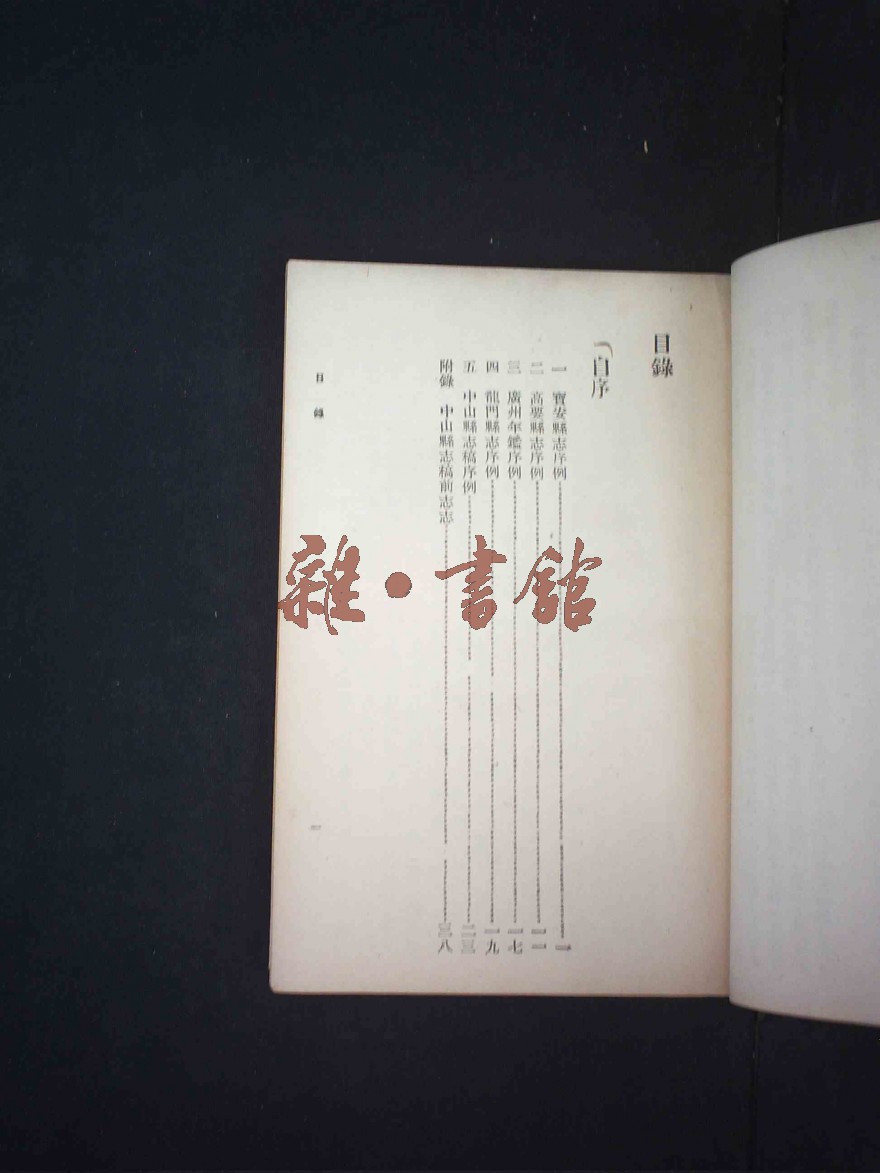 目錄
自序
一 寶安縣志序例 一
二 高要縣志序例 一一
三 廣州年鑑序例 一七
四 龍門縣志序例 一九
五 中山縣志稿序例 二三
附錄 中山縣志稿前志志 三八
目錄
一
雜·書館